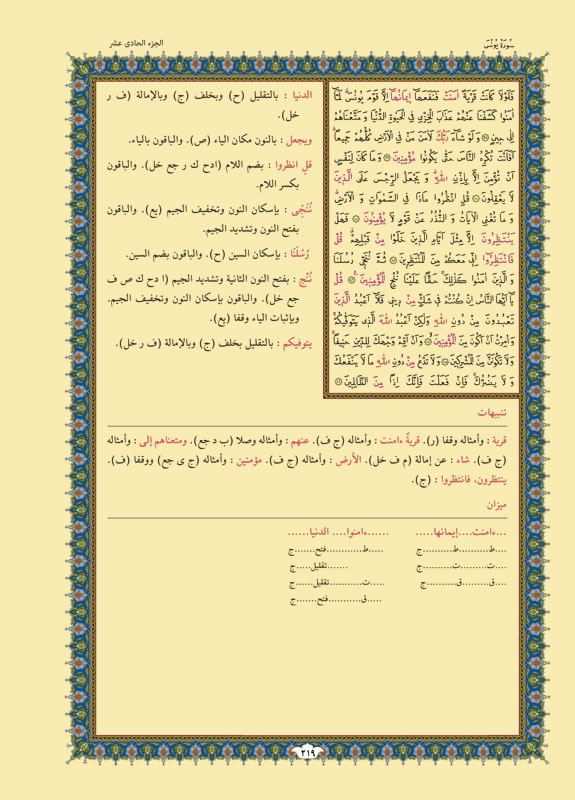 سورة يونس
الجزء الحادى عشر
فَلَوْلَا كَانَتْ قَرْيَةٌ اٰمَنَتْ فَنَفَعَهَا اٖيمَانُهَا اِلَّا قَوْمَ يُونُسَ لَمَّا
اٰمَنُوا كَشَفْنَا عَنْهُمْ عَذَابَ الْخِزْىِ فِى الْحَيٰوةِ الدُّنْيَا وَمَتَّعْنَاهُمْ
اِلٰى حٖينٍ وَلَوْ شَاءَ رَبُّكَ لَاٰمَنَ مَنْ فِى الْاَرْضِ كُلُّهُمْ جَمٖيعًا
اَفَاَنْتَ تُكْرِهُ النَّاسَ حَتّٰى يَكُونُوا مُؤْمِنٖينَ وَمَا كَانَ لِنَفْسٍ
اَنْ تُؤْمِنَ اِلَّا بِاِذْنِ اللّٰهِ وَ يَجْعَلُ الرِّجْسَ عَلَى الَّذٖينَ
لَا يَعْقِلُونَ قُلِ انْظُرُوا مَاذَا فِى السَّمٰوَاتِ وَ الْاَرْضِ
وَ مَا تُغْنِى الْاٰيَاتُ وَ النُّذُرُ عَنْ قَوْمٍ لَا يُؤْمِنُونَ فَهَلْ
يَنْتَظِرُونَ اِلَّا مِثْلَ اَيَّامِ الَّذٖينَ خَلَوْا مِنْ قَبْلِهِمْ قُلْ
فَانْتَظِرُوا اِنّٖى مَعَكُمْ مِنَ الْمُنْتَظِرٖينَ ثُمَّ نُنَجّٖى رُسُلَنَا
وَ الَّذٖينَ اٰمَنُوا كَذٰلِكَ حَقًّا عَلَيْنَا نُنْجِ الْمُؤْمِنٖينَ قُلْ
يَا اَيُّهَا النَّاسُ اِنْ كُنْتُمْ فٖى شَكٍّ مِنْ دٖينٖى فَلَا اَعْبُدُ الَّذٖينَ
تَعْبُدُونَ مِنْ دُونِ اللّٰهِ وَلٰكِنْ اَعْبُدُ اللّٰهَ الَّذٖى يَتَوَفّٰيكُمْ
وَاُمِرْتُ اَنْ اَكُونَ مِنَ الْمُؤْمِنٖينَ وَاَنْ اَقِمْ وَجْهَكَ لِلدّٖينِ حَنٖيفًا
وَلَا تَكُونَنَّ مِنَ الْمُشْرِكٖينَ وَلَا تَدْعُ مِنْ دُونِ اللّٰهِ مَا لَا يَنْفَعُكَ
وَ لَا يَضُرُّكَ فَاِنْ فَعَلْتَ فَاِنَّكَ اِذًا مِنَ الظَّالِمٖينَ
الدنيا : بالتقليل (ح) وبخلف (ج) وبالإمالة (ف ر
خل).
ويجعل : بالنون مكان الياء (ص). والباقون بالياء.
قل انظروا : بضم اللام (ادح ك ر جع خل). والباقون
بكسر اللام.
نُنَجِّى : بإسكان النون وتخفيف الجيم (يع). والباقون
بفتح النون وتشديد الجيم.
رُسُلَنَا : بإسكان السين (ح). والباقون بضم السين.
نُنْجِ : بفتح النون الثانية وتشديد الجيم (ا دح ك ص ف
جع خل). والباقون بإسكان النون وتخفيف الجيم.
وبإثبات الياء وقفا (يع).
يتوفيكم : بالتقليل بخلف (ج) وبالإمالة (ف ر خل).
تنبيهات
قرية : وأمثاله وقفا (ر). قريةٌ ءامنت : وأمثاله (ج ف). عنهم : وأمثاله وصلا (ب د جع). ومتعناهم إلى : وأمثاله
(ج ف). شاء : عن إمالة (م ف خل). الأرض : وأمثاله (ج ف). مؤمنين : وأمثاله (ج ى جع) ووقفا (ف).
ينتظرون، فانتظروا : (ج).
ميزان
...ءامنت....إيمانها..... ......ءامنوا.... الدنيا......
....ط..........ط..........ج ......ط............فتح.......ج
....ت..........ت..........ج .......تقليل.....ج
....ق..........ق..........ج .....ت...........تقليل......ج
.....ق...........فتح.......ج
٢١٩